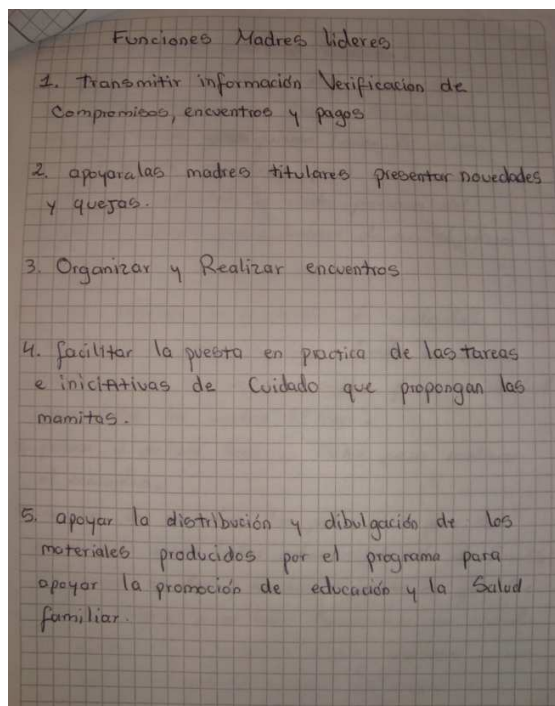 Funciones Madres lideres
1. Transmitir información Verificacion de
Compromisos, encuentros y pagos
2. apoyaralas madres titulares presentar novedades
y quejas.
3. Organizar y Realizar encuentros
4. facilitar la puesta en practica de las tareas
e iniciAtivas de Cuidado que propongan las
mamitas.
5. apoyar la distribución y dibulgación de los
materiales producidos por el programa para
apoyar la promoción de educación y la Salud
familiar.